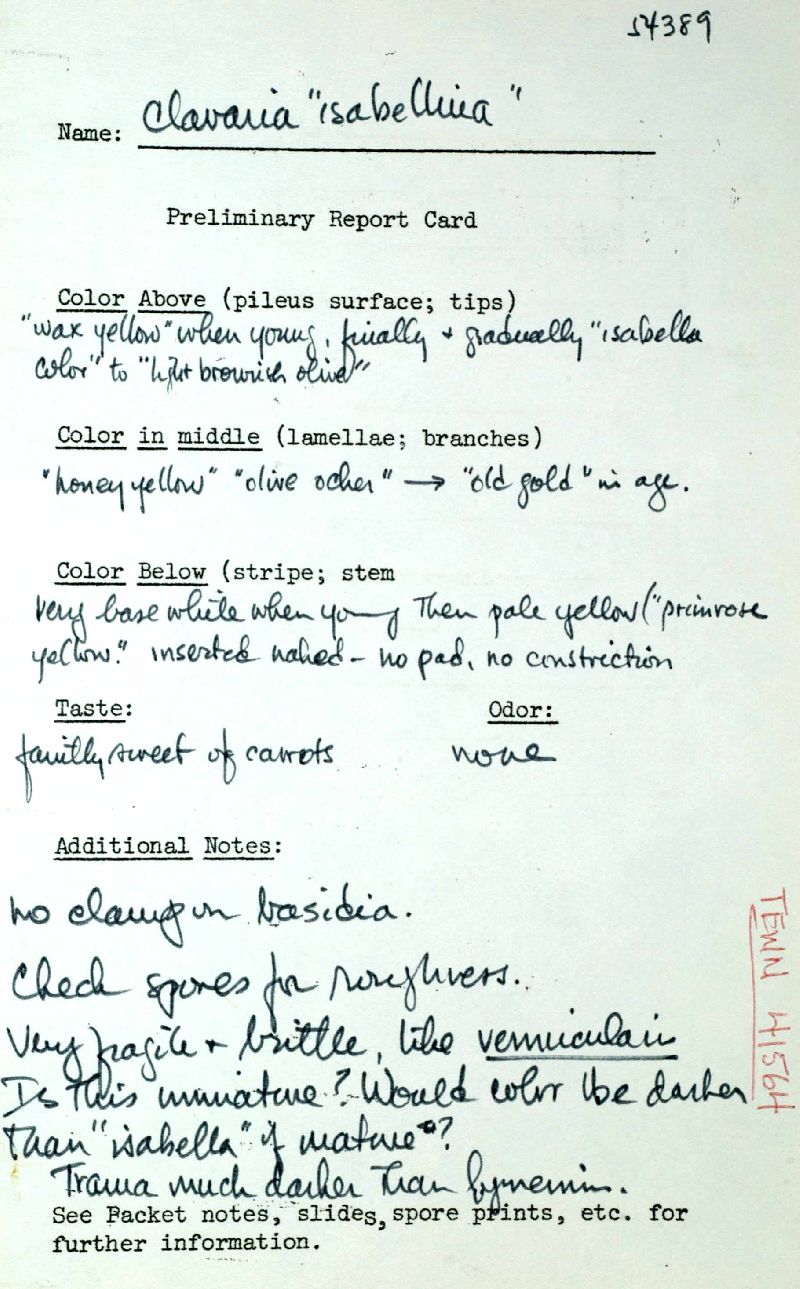 54389
Name: Clavaria "isabellina"
Preliminary Report Card
Color Above (pileus surface; tips)
"wax yellow" when young, finally + gradually "isabella
color" to "light brownish olive"
Color in middle (lamellae; branches)
"honey yellow" "olive ocher" → "old gold" in age.
Color Below (stripe; stem
Very base white when young Then pale yellow ("primrose
yellow." inserted naked - no pad, no constriction
Taste: Odor:
faintly sweet of carrots none
Additional Notes:
no clamp on basidia.
Check spores for roughness.
Very fragile + brittle, like vermicularis
Is this immature? Would color be darker
Than "isabella" if mature?
Trama much darker Than hymenium.
See Packet notes, slides, spore prints, etc. for
further information.
TENN 41564